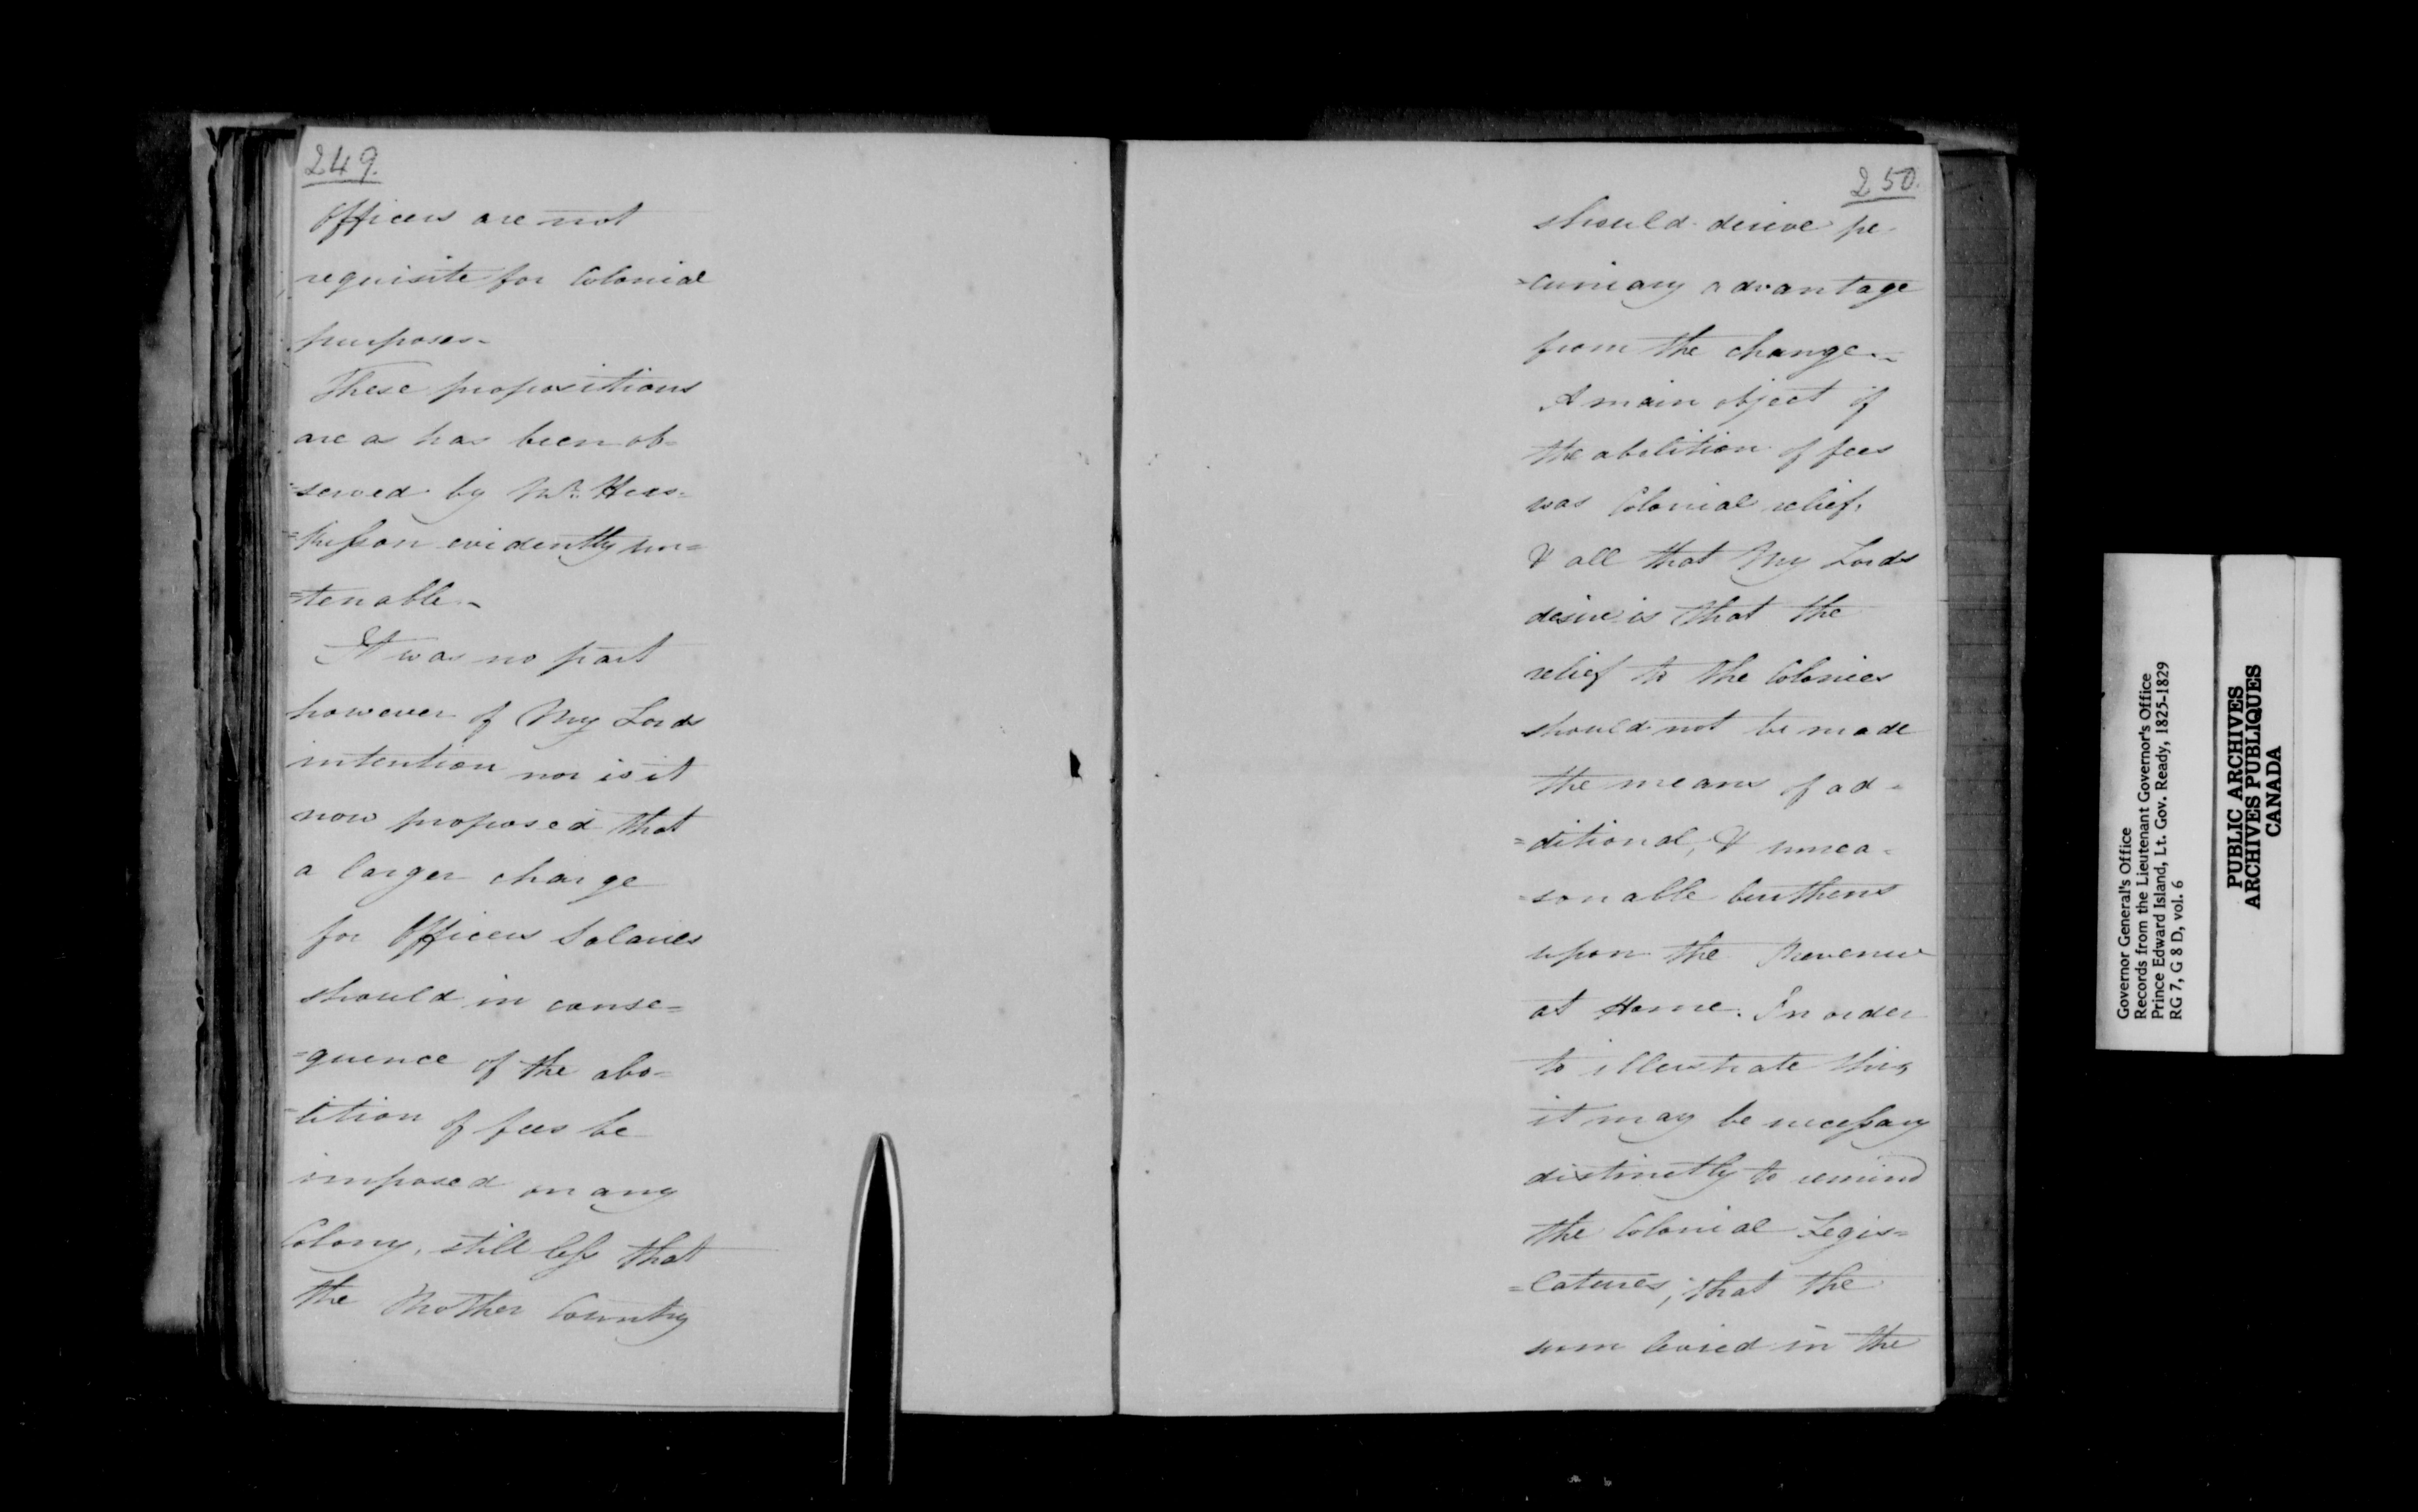 249.
Officers are not
requisite for Colonial
purposes-
These propositions
are as has been ob=
=served by Mr. Hus=
=kisson evidently un=
=tenable-
It was no part
however of My Lords
intention nor is it
now proposed that
a larger charge
for Officers Salaries
should in conse=
=quence of the abo=
=lition of fees be
imposed on any
Colony, still less that
the Mother Country
250.
should derive pe-
=cuniary advantage
from the change-
A main object of
the abolition of fees
was Colonial relief,
& all that My Lords
desire is that the
relief to the Colonies
should not be made
the means of ad=
=ditional, & unrea=
=sonable burthens
upon the Revenue
at Home. In order
to illustrate this,
it may be necessary
distinctly to remind
the Colonial Legis=
=latures, that the
sum levied in the
Governor General's Office
Records from the Lieutenant Governor's Office
Prince Edward Island, Lt. Gov. Ready, 1825-1829
RG 7, G 8 D, vol. 6
PUBLIC ARCHIVES
ARCHIVES PUBLIQUES
CANADA